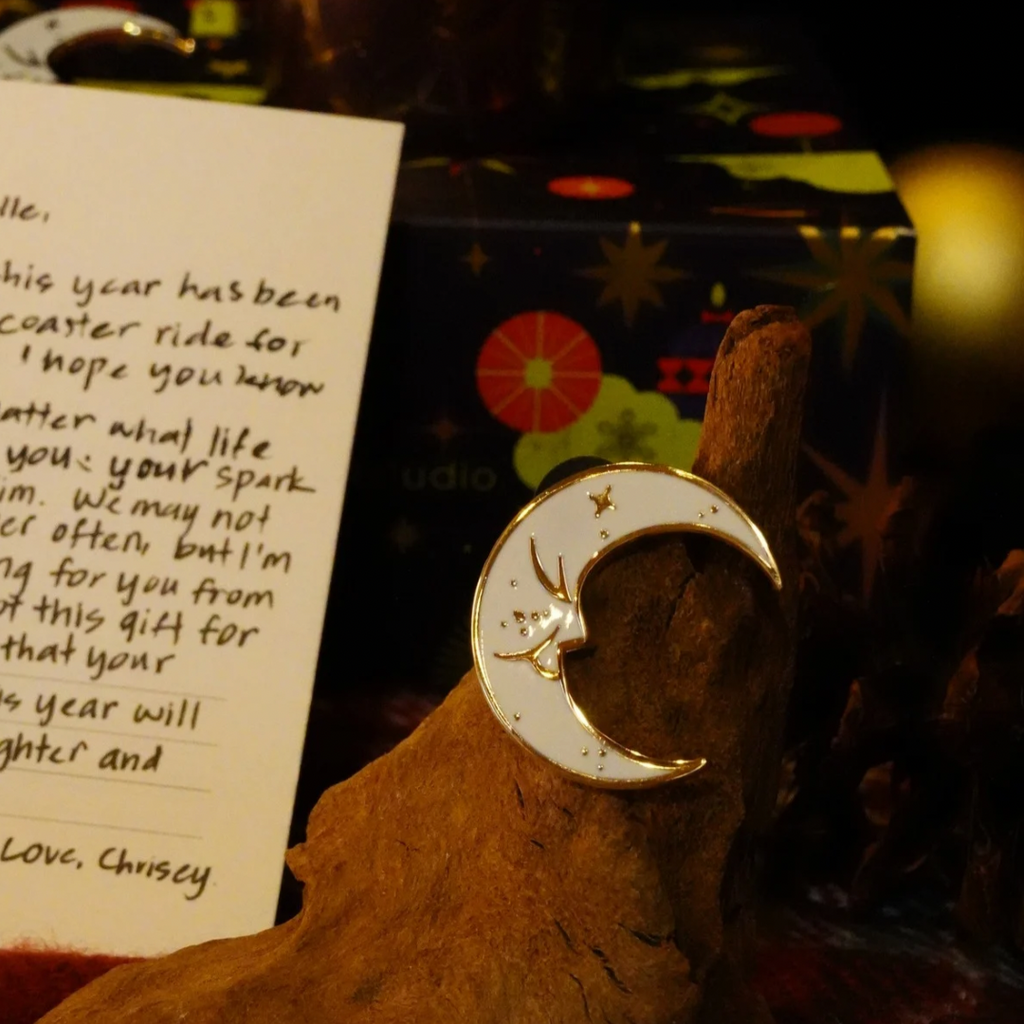 lle,
his year has been
coaster ride for
I hope you know
atter what life
you: your spark
im. We may not
er often, but I'm
ng for you from
ot this gift for
that your
is year will
ghter and
Love, Chrisey
udio